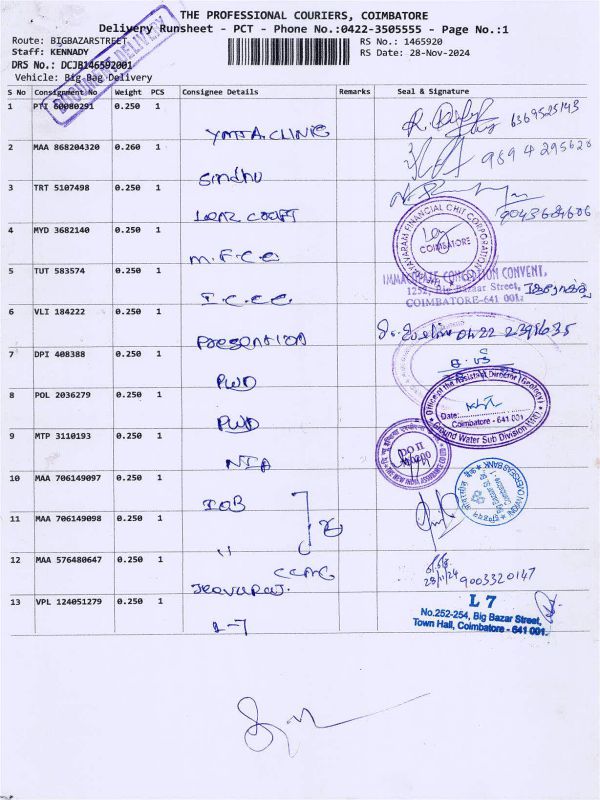 THE PROFESSIONAL COURIERS, COIMBATORE
Delivery Runsheet - PCT - Phone No.:0422-3505555 - Page No.:1
Route: BIGBAZARSTREET
RS No.: 1465920
Staff: KENNADY
RS Date: 28-Nov-2024
DRS No.: DCJB146592001
Vehicle: Big Bag Delivery
DOCUMENT DELIVERY
S No Consignment No Weight PCS Consignee Details Remarks Seal & Signature
1 PTI 60080291 0.250 1
6369525143
2 MAA 868204320 0.260 1 Sindhu
3 TRT 5107498 0.250 1
9043684606
4 MYD 3682140 0.250 1 M.F.C.C
FINANCIAL CHIT CORPORATION
COIMBATORE
5 TUT 583574 0.250 1 I.C.C.C.
CONVENT,
1252, Big Bazaar Street,
COIMBATORE-641 001.
6 VLI 184222 0.250 1 Presention
0422 2398635
7 DPI 408388 0.250 1 PWD
Office of the Assistant Director (Geology)
Date:
Coimbatore - 641 001
Ground Water Sub Division
8 POL 2036279 0.250 1 PWD
9 MTP 3110193 0.250 1 NIA
DO II
THE NEW INDIA ASSURANCE CO LTD
10 MAA 706149097 0.250 1 IOB
INDIAN OVERSEAS BANK
11 MAA 706149098 0.250 1 "
12 MAA 576480647 0.250 1
28/11/24 9003320147
13 VPL 124051279 0.250 1 L-7
L 7
No.252-254, Big Bazar Street,
Town Hall, Coimbatore - 641 001.